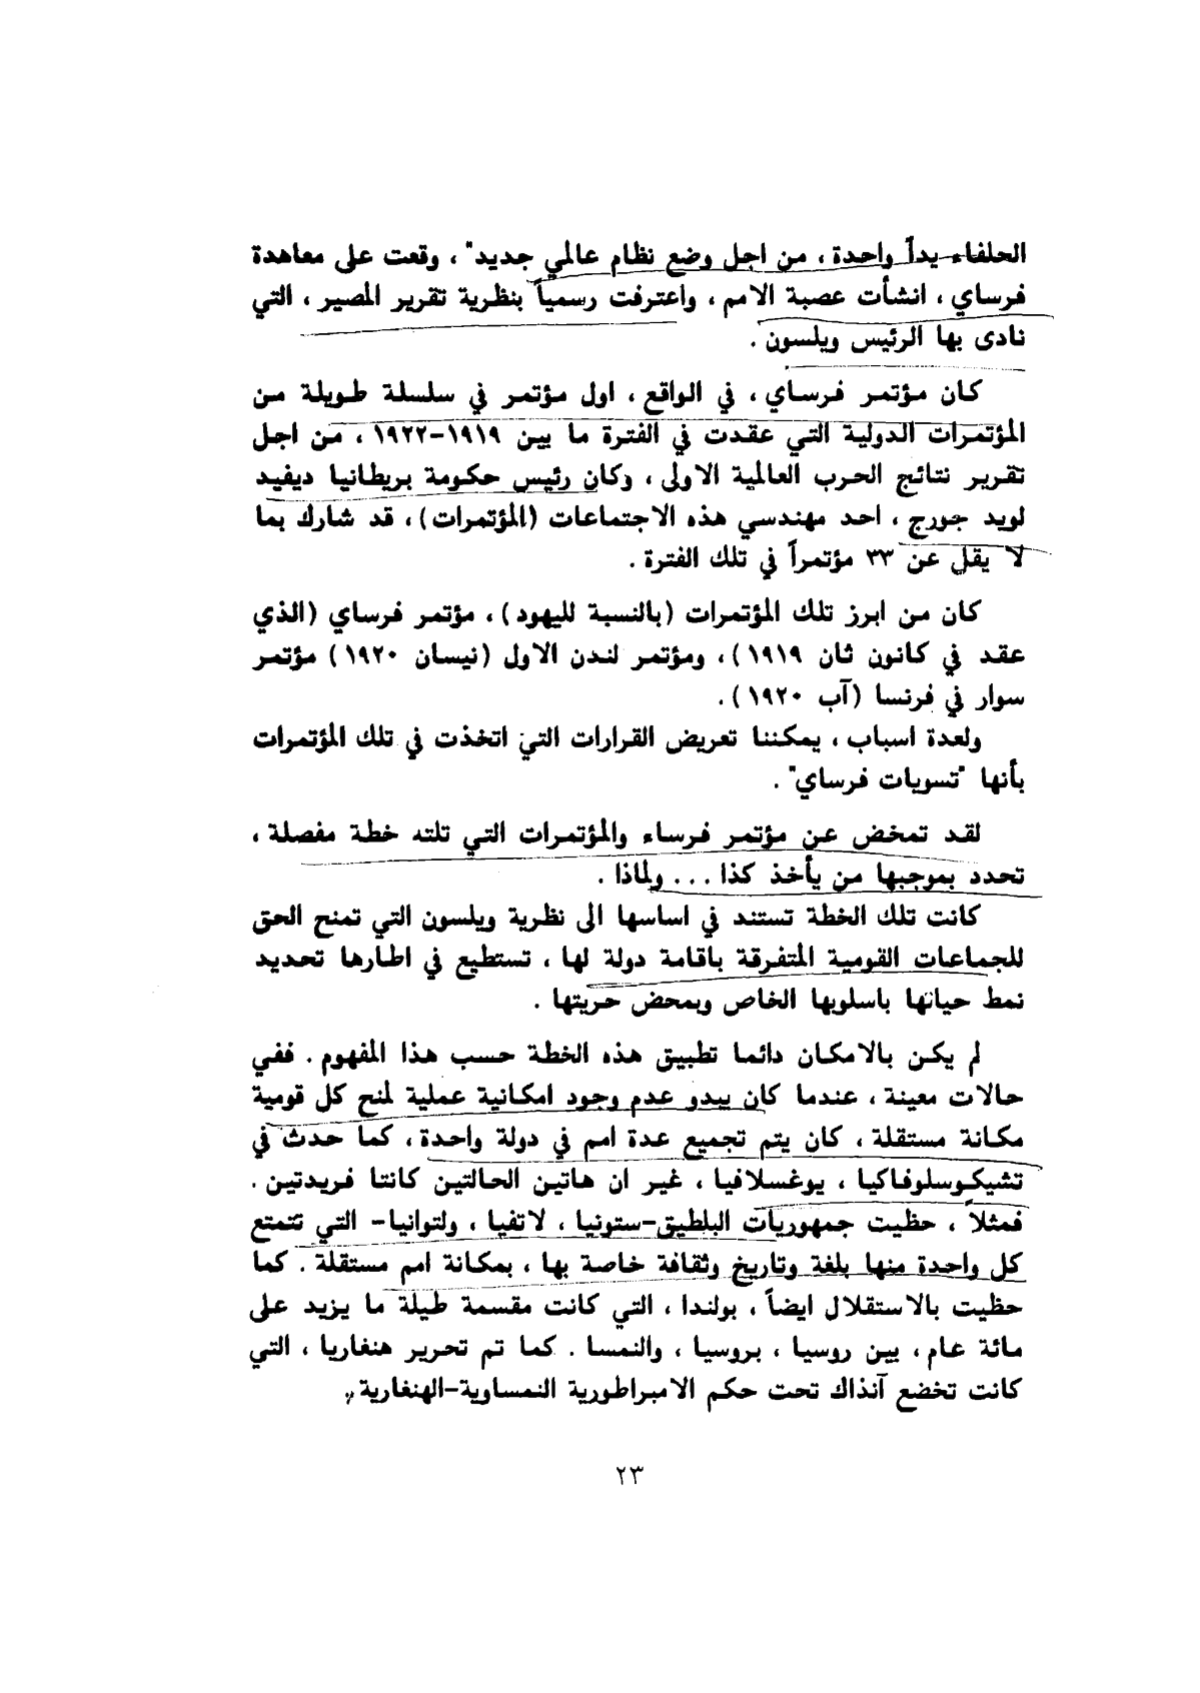 الحلفاء يداً واحدة ، من اجل وضع نظام عالمي جديد" ، وقعت على معاهدة
فرساي ، انشأت عصبة الامم ، واعترفت رسمياً بنظرية تقرير المصير ، التي
نادى بها الرئيس ويلسون .
كان مؤتمر فرساي ، في الواقع ، اول مؤتمر في سلسلة طويلة من
المؤتمرات الدولية التي عقدت في الفترة ما بين ١٩١٩-١٩٢٢ ، من اجل
تقرير نتائج الحرب العالمية الاولى ، وكان رئيس حكومة بريطانيا ديفيد
لويد جورج ، احد مهندسي هذه الاجتماعات (المؤتمرات) ، قد شارك بما
لا يقل عن ٣٣ مؤتمراً في تلك الفترة .
كان من ابرز تلك المؤتمرات (بالنسبة لليهود) ، مؤتمر فرساي (الذي
عقد في كانون ثان ١٩١٩) ، ومؤتمر لندن الاول (نيسان ١٩٢٠) مؤتمر
سوار في فرنسا (آب ١٩٢٠) .
ولعدة اسباب ، يمكننا تعريض القرارات التي اتخذت في تلك المؤتمرات
بأنها "تسويات فرساي" .
لقد تمخض عن مؤتمر فرساء والمؤتمرات التي تلته خطة مفصلة ،
تحدد بموجبها من يأخذ كذا ... ولماذا .
كانت تلك الخطة تستند في اساسها الى نظرية ويلسون التي تمنح الحق
للجماعات القومية المتفرقة باقامة دولة لها ، تستطيع في اطارها تحديد
نمط حياتها باسلوبها الخاص وبمحض حريتها .
لم يكن بالامكان دائما تطبيق هذه الخطة حسب هذا المفهوم . ففي
حالات معينة ، عندما كان يبدو عدم وجود امكانية عملية لمنح كل قومية
مكانة مستقلة ، كان يتم تجميع عدة امم في دولة واحدة ، كما حدث في
تشيكوسلوفاكيا ، يوغسلافيا ، غير ان هاتين الحالتين كانتا فريدتين .
فمثلاً ، حظيت جمهوريات البلطيق-ستونيا ، لاتفيا ، ولتوانيا- التي تتمتع
كل واحدة منها بلغة وتاريخ وثقافة خاصة بها ، بمكانة امم مستقلة . كما
حظيت بالاستقلال ايضاً ، بولندا ، التي كانت مقسمة طيلة ما يزيد على
مائة عام ، بين روسيا ، بروسيا ، والنمسا . كما تم تحرير هنغاريا ، التي
كانت تخضع آنذاك تحت حكم الامبراطورية النمساوية-الهنغارية ،
٢٣